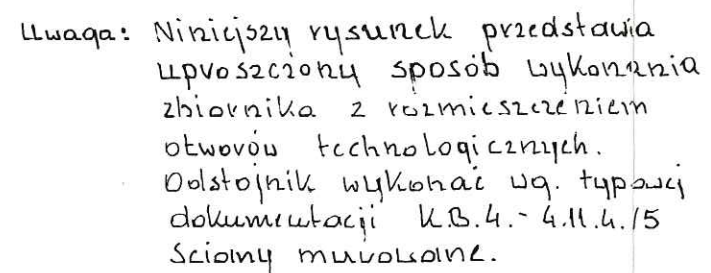 Uwaga: Niniejszy rysunek przedstawia
uproszczony sposób wykonania
zbiornika z rozmieszczeniem
otworów technologicznych.
Odstojnik wykonać wg. typowej
dokumentacji K.B.4.-4.11.4./5
Ściany murowane.